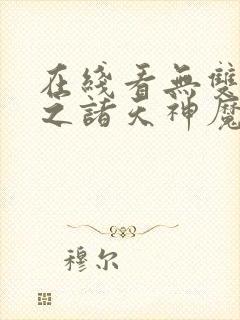 在綫看無雙
之諸天神魔
穆尔